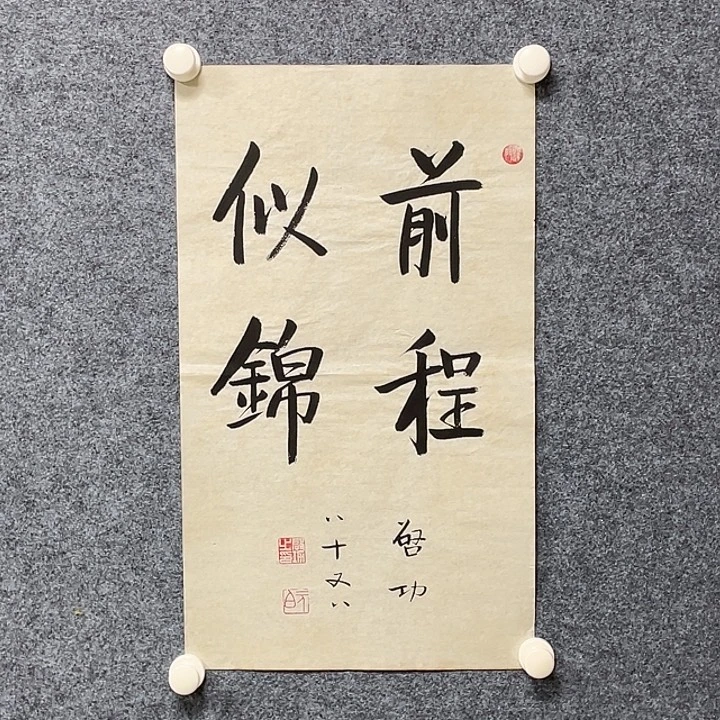 前程
似錦
啓功
八十又八